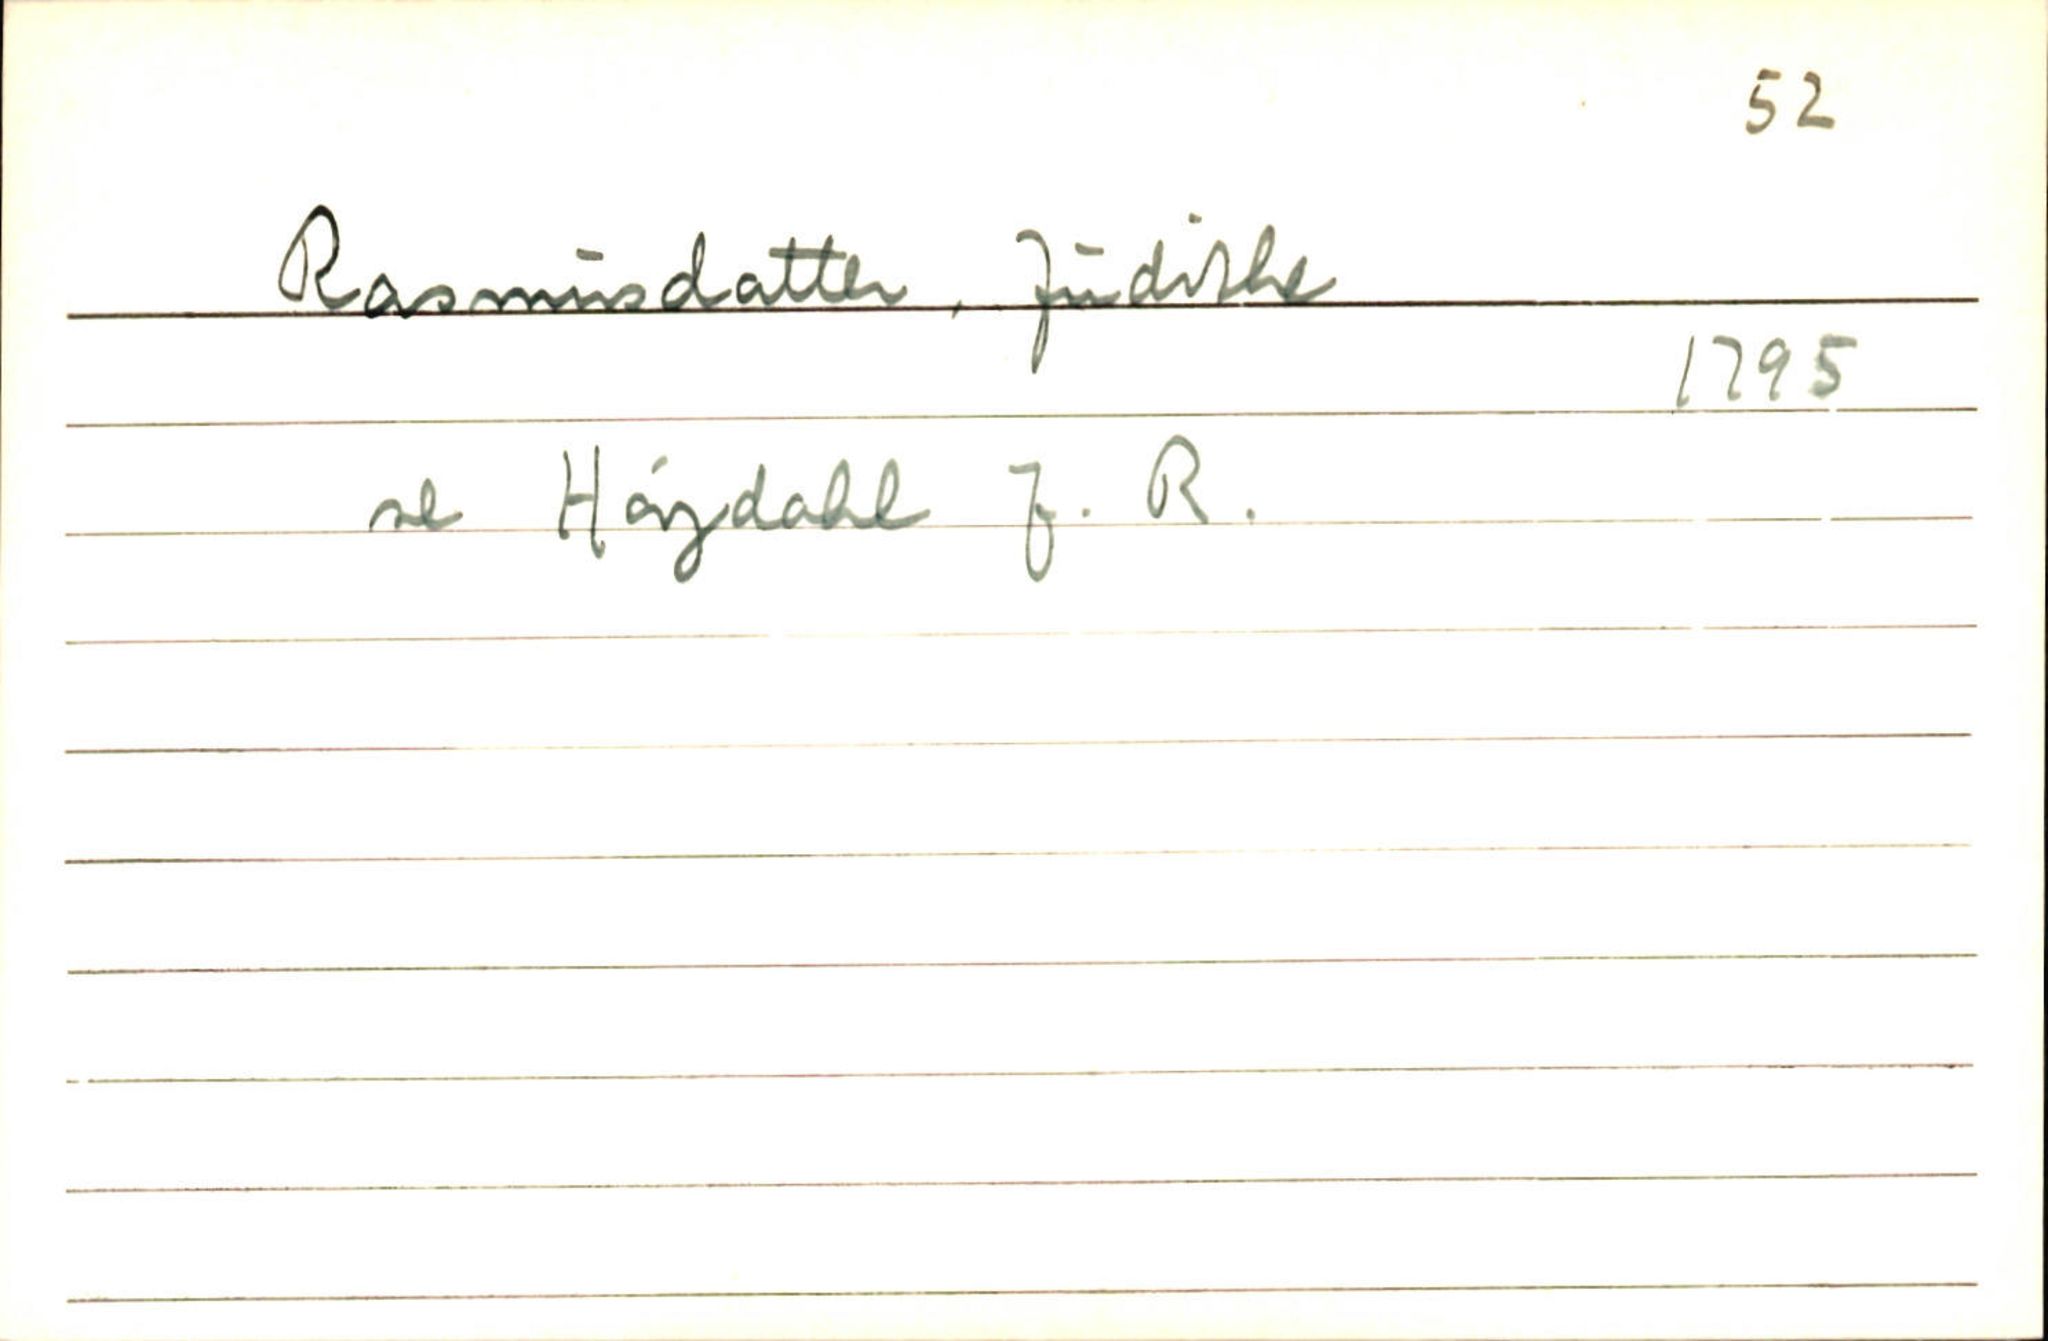 52
Rasmusdatter, Judithe
1795
se Høÿdahl J. R.